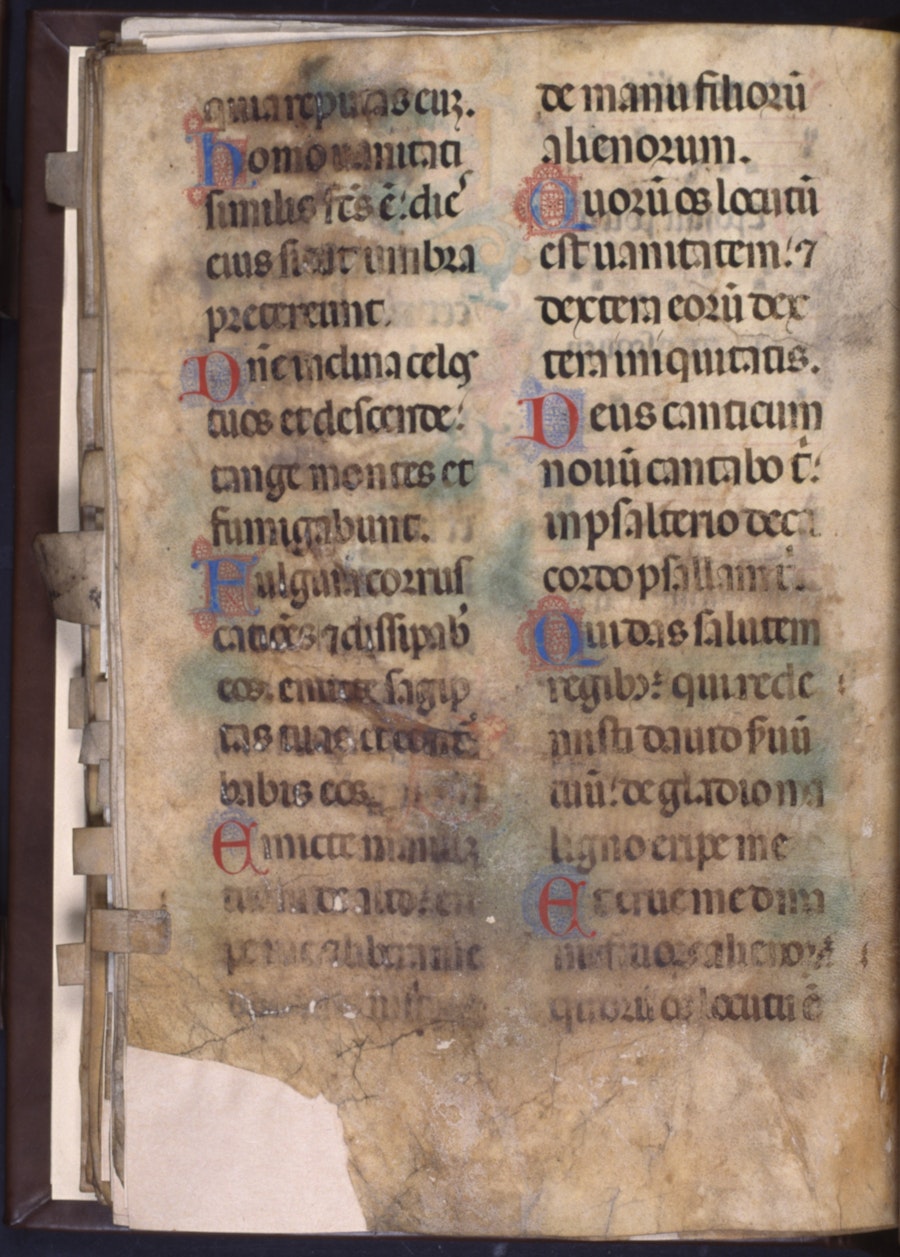 quia reputas euꝫ.
homo uanitati
similis fcs̄ ē: dieˢ
eius sicut umbra
pretereunt.
Dn̄e inclina celos
tuos et descende:
tange montes et
fumigabunt.
Fulgura corrus
catiōes ⁊ dissipabˢ
eos. emitte sagip
tas tuas et contˢ
babis eos.
Emitte manuꝫ
tuā de alto: eri
pe me ⁊ libera me
de manu filiorū
alienorum.
Quorū os locutū
est uanitatem: ⁊
dextera eorū dex
tera iniquitatis.
Deus canticum
nouū cantabo t̄:
in psalterio deca
cordo psallam t̄.
Qui das salutem
regibꝫ: qui rede
misti dauid ſuū
tuū: de gladio ma
ligno eripe me
Et erue me d̄ ma
nu filiorū alienorꝫ
quorū os locutū ē